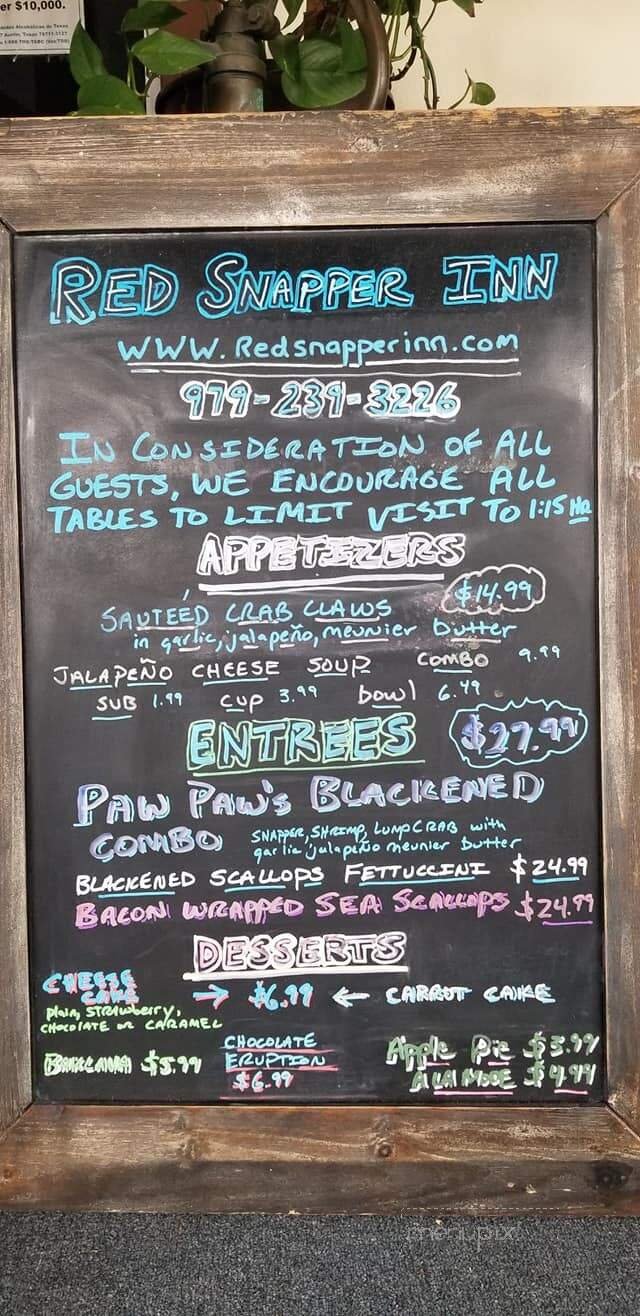 er $10,000.
RED SNAPPER INN
WWW.Redsnapperinn.com
979-239-3226
IN CONSIDERATION OF ALL
GUESTS, WE ENCOURAGE ALL
TABLES TO LIMIT VISIT TO 1:15 HR
APPETIZERS
SAUTEÉD CRAB CLAWS $14.99
in garlic, jalapeño, meunier butter
JALAPEÑO CHEESE SOUP COMBO 9.99
SUB 1.99 CUP 3.99 bowl 6.49
ENTREES $27.99
PAW PAW'S BLACKENED
COMBO SNAPPER, SHRIMP, LUMP CRAB with
garlic jalapeño meunier butter
BLACKENED SCALLOPS FETTUCCINI $24.99
BACON WRAPPED SEA SCALLOPS $24.99
DESSERTS
CHEESE
CAKE → $6.99 ← CARROT CAKE
plain, STRAWberry,
CHOCOLATE or CARAMEL
BAKLAVA $5.99
CHOCOLATE
ERUPTION
$6.99
Apple Pie $3.99
A LA MODE $4.99
menupix